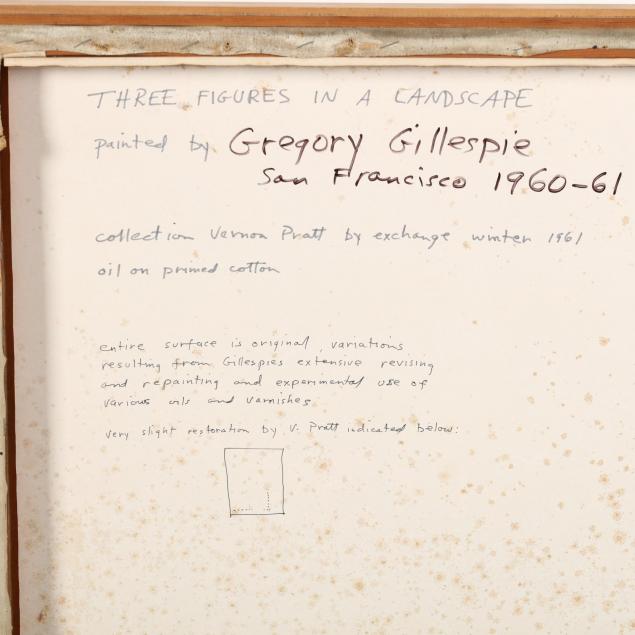 THREE FIGURES IN A LANDSCAPE
painted by Gregory Gillespie
San Francisco 1960-61
collection Vernon Pratt by exchange winter 1961
oil on primed cotton
entire surface is original, variations
resulting from Gillespies extensive revising
and repainting and experimental use of
various oils and varnishes
very slight restoration by V. Pratt indicated below: